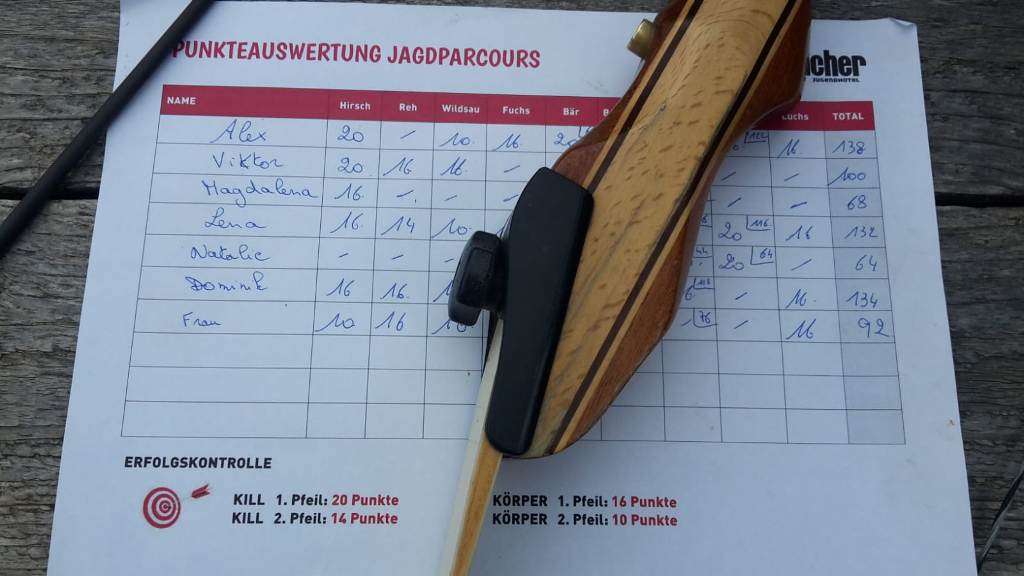 PUNKTEAUSWERTUNG JAGDPARCOURS
JUGENDHOTEL
NAME Hirsch Reh Wildsau Fuchs Bär TOTAL
Alex 20 – 10 16 20 16 138
Viktor 20 16 16 – – – 100
Magdalena 16 – – – – 68
Lena 16 14 10 20 116 16 132
Natalie – – – 20 64 – 64
Dominik 16 16 – 16 134
Frau 10 16 76 – 16 92
ERFOLGSKONTROLLE
KILL 1. Pfeil: 20 Punkte KÖRPER 1. Pfeil: 16 Punkte
KILL 2. Pfeil: 14 Punkte KÖRPER 2. Pfeil: 10 Punkte